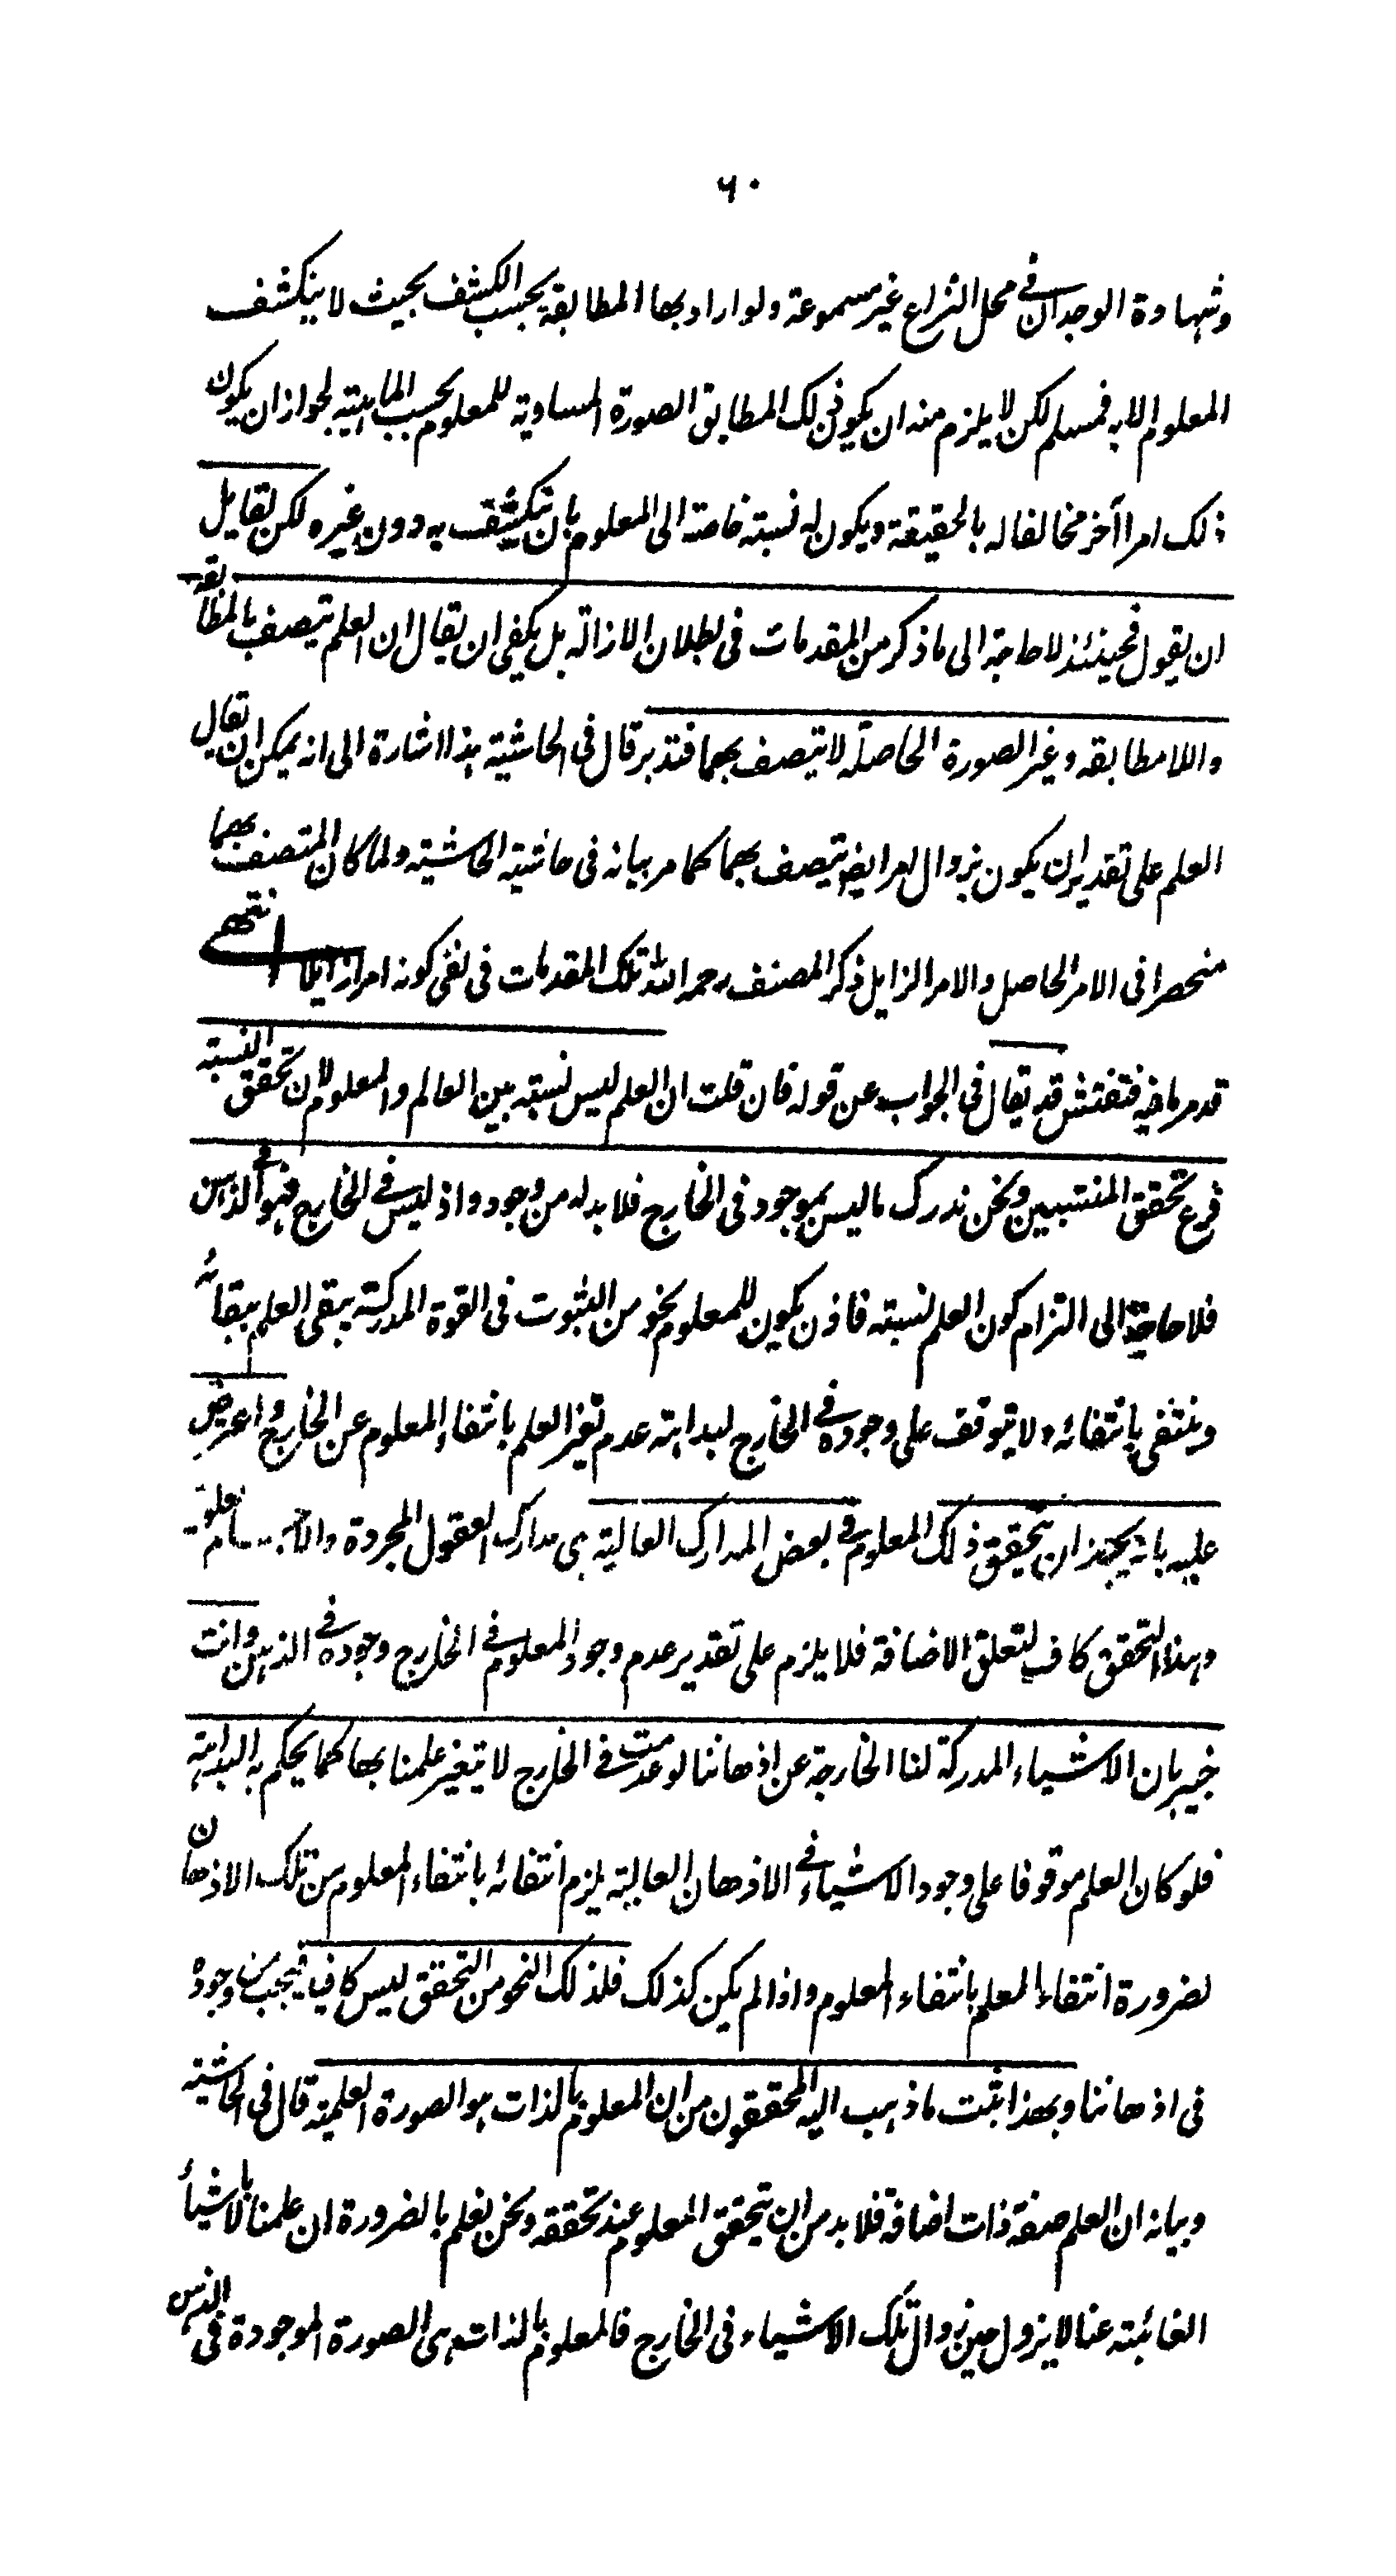 ٦٠
وشهادة الوجدان في محل النزاع غير مسموعة ولو اراد بها المطابقة بحسب الكشف بحيث لا ينكشف
المعلوم الا به فمسلم لكن لا يلزم منه ان يكون ذلك المطابق الصورة المساوية للمعلوم بحسب الماهية لجواز ان يكون
ذلك امرا آخر مخالفا له بالحقيقة ويكون له نسبته خاصة الى المعلوم بان ينكشف به دون غيره لكن لقايل
ان يقول فحينئذ لا حاجة الى ما ذكر من المقدمات في بطلان الازالة بل يكفي ان يقال ان العلم يتصف بالمطابقة
واللامطابقه وغير الصورة الحاصله لا يتصف بهما فتدبر قال في الحاشية هذا اشارة الى انه يمكن ان يقال
العلم على تقدير ان يكون بزوال امر ايضا يتصف بهما كما مر بيانه في حاشية الحاشيته ولما كان المتصف بهما
منحصرا في الامر الحاصل والامر الزايل ذكر المصنف رحمه الله تلك المقدمات في نفي كونه امرا زايلا انتهى
قد مر ما فيه فتفتش قد يقال في الجواب عن قوله فان قلت ان العلم ليس نسبته بين العالم والمعلوم لان تحقق النسبته
فرع تحقق المنتسبين ونحن ندرك ما ليس بموجود في الخارج فلا بد له من وجود واذ ليس في الخارج فهو في الذهن
فلا حاجة الى التزام كون العلم نسبته فاذن يكون للمعلوم نحو من الثبوت في القوة المدركة يبقى العلم ببقائه
وينتفى بانتفائه ولا يتوقف على وجوده في الخارج لبداهته عدم تغير العلم بانتفاء المعلوم عن الخارج واعترض
عليه بانه يجوز ان يتحقق ذلك المعلوم في بعض المدارك العالية هى مدارك العقول المجردة
وهذا التحقق كاف لتعلق الاضافة فلا يلزم على تقدير عدم وجود المعلوم في الخارج وجوده في الذهن وانت
خبير بان الاشياء المدركة لنا الخارجة عن اذهاننا لو عدمت في الخارج لا يتغير علمنا بها كما يحكم به البداهته
فلو كان العلم موقوفا على وجود الاشياء في الاذهان العالية يلزم انتفائه بانتفاء المعلوم من تلك الاذهان
لضرورة انتفاء العلم بانتفاء المعلوم واذا لم يكن كذلك فلذلك النحو من التحقق ليس كافيا فيجب من وجوده
في اذهاننا وبهذا ثبت ما ذهب اليه المحققون من ان المعلوم بالذات هو الصورة العلمية قال في الحاشيته
وبيانه ان العلم صفة ذات اضافة فلا بد من ان يتحقق المعلوم عند تحققه ونحن نعلم بالضرورة ان علمنا بالاشياء
الغائبته عنا لا يزول حين زوال تلك الاشياء في الخارج فالمعلوم بالذات هى الصورة الموجودة في الذهن